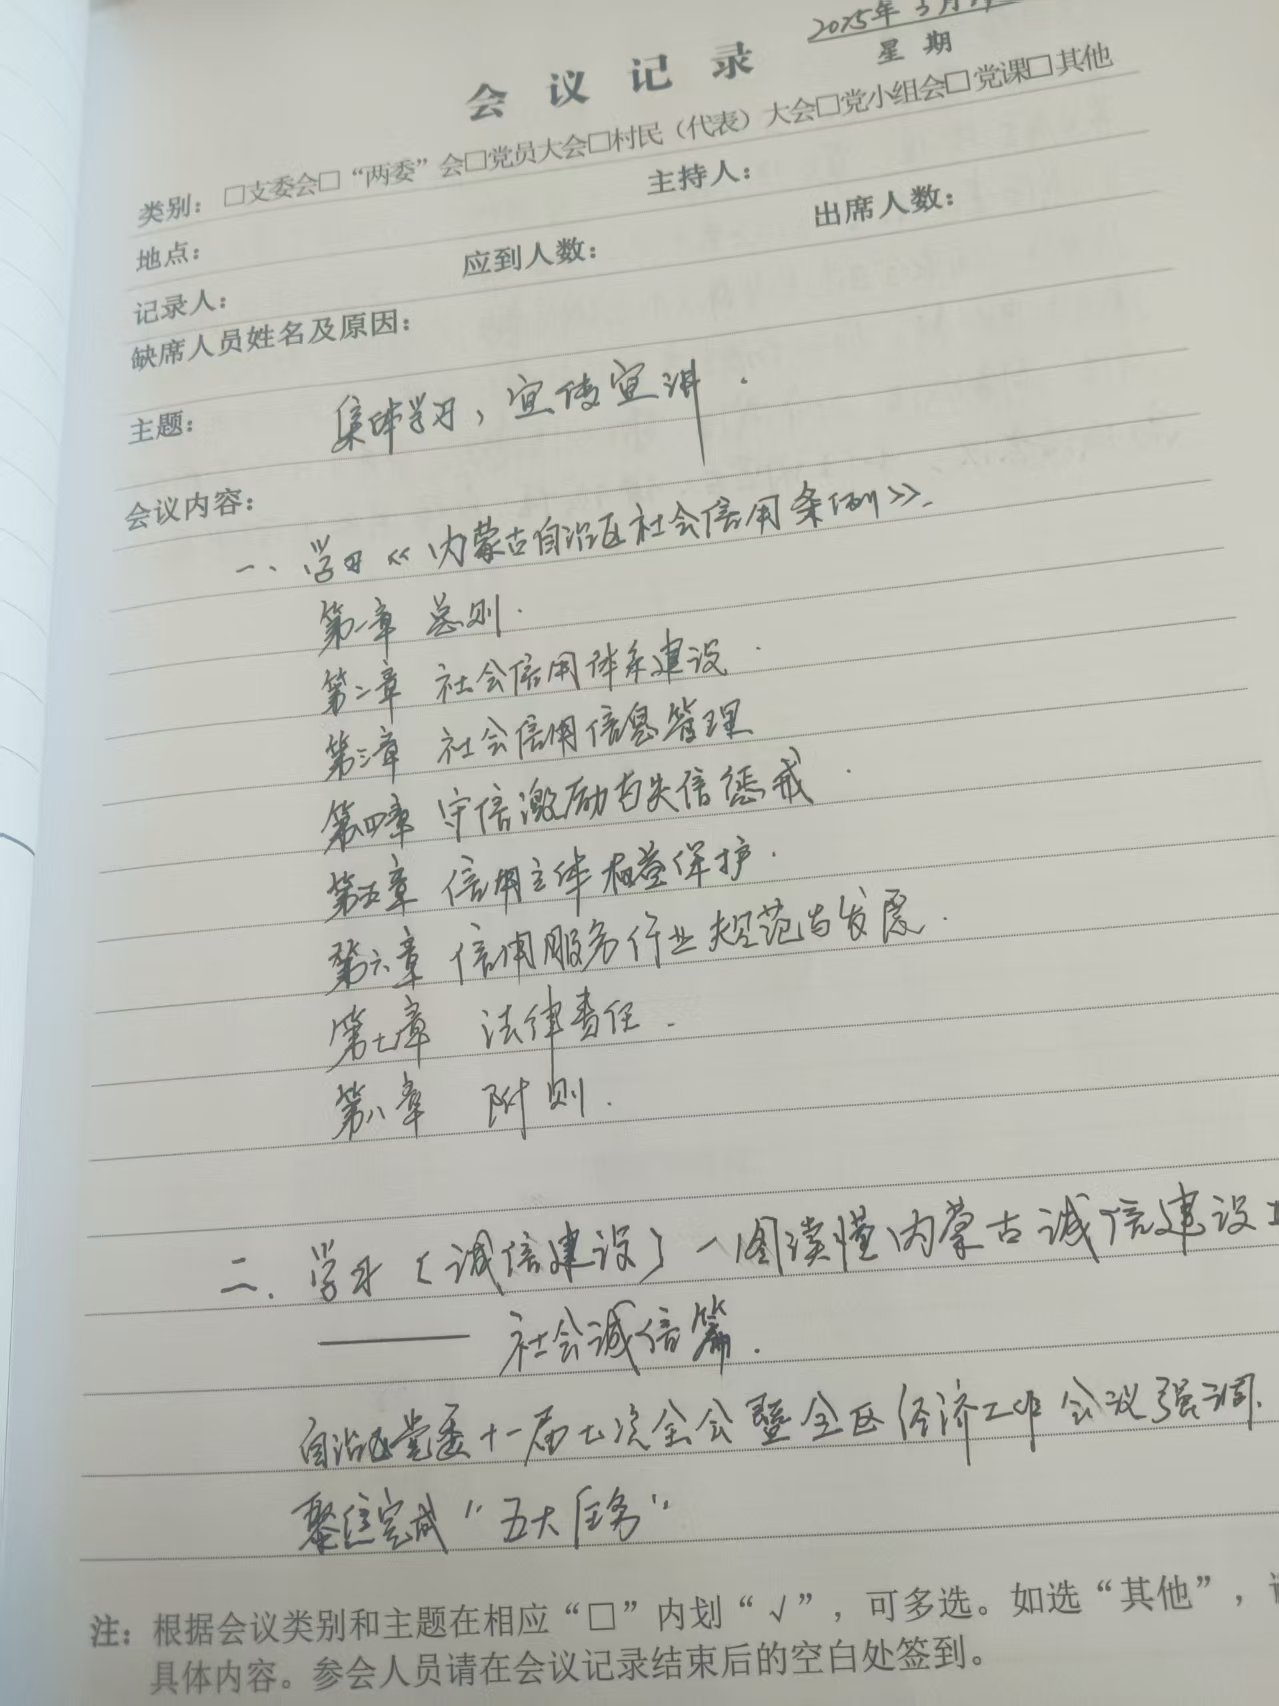 2025年3月
会议记录
星期
类别：□支委会□“两委”会□党员大会□村民（代表）大会□党小组会□党课□其他
地点： 主持人：
记录人： 应到人数： 出席人数：
缺席人员姓名及原因：
主题： 集体学习，宣传宣讲.
会议内容：
一、学习《内蒙古自治区社会信用条例》.
第一章 总则.
第二章 社会信用体系建设.
第三章 社会信用信息管理
第四章 守信激励与失信惩戒.
第五章 信用主体权益保护.
第六章 信用服务行业规范与发展.
第七章 法律责任.
第八章 附则.
二、学习〔诚信建设〕一图读懂内蒙古诚信建设
—— 社会诚信篇.
自治区党委十一届七次全会暨全区经济工作会议强调.
聚信完成“五大任务”
注：根据会议类别和主题在相应“□”内划“√”，可多选。如选“其他”，
具体内容。参会人员请在会议记录结束后的空白处签到。